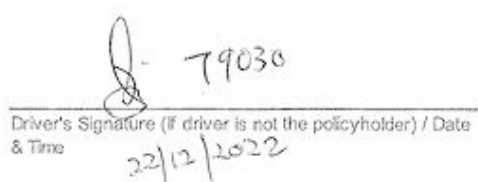 79030
Driver's Signature (If driver is not the policyholder) / Date
& Time
22/12/2022